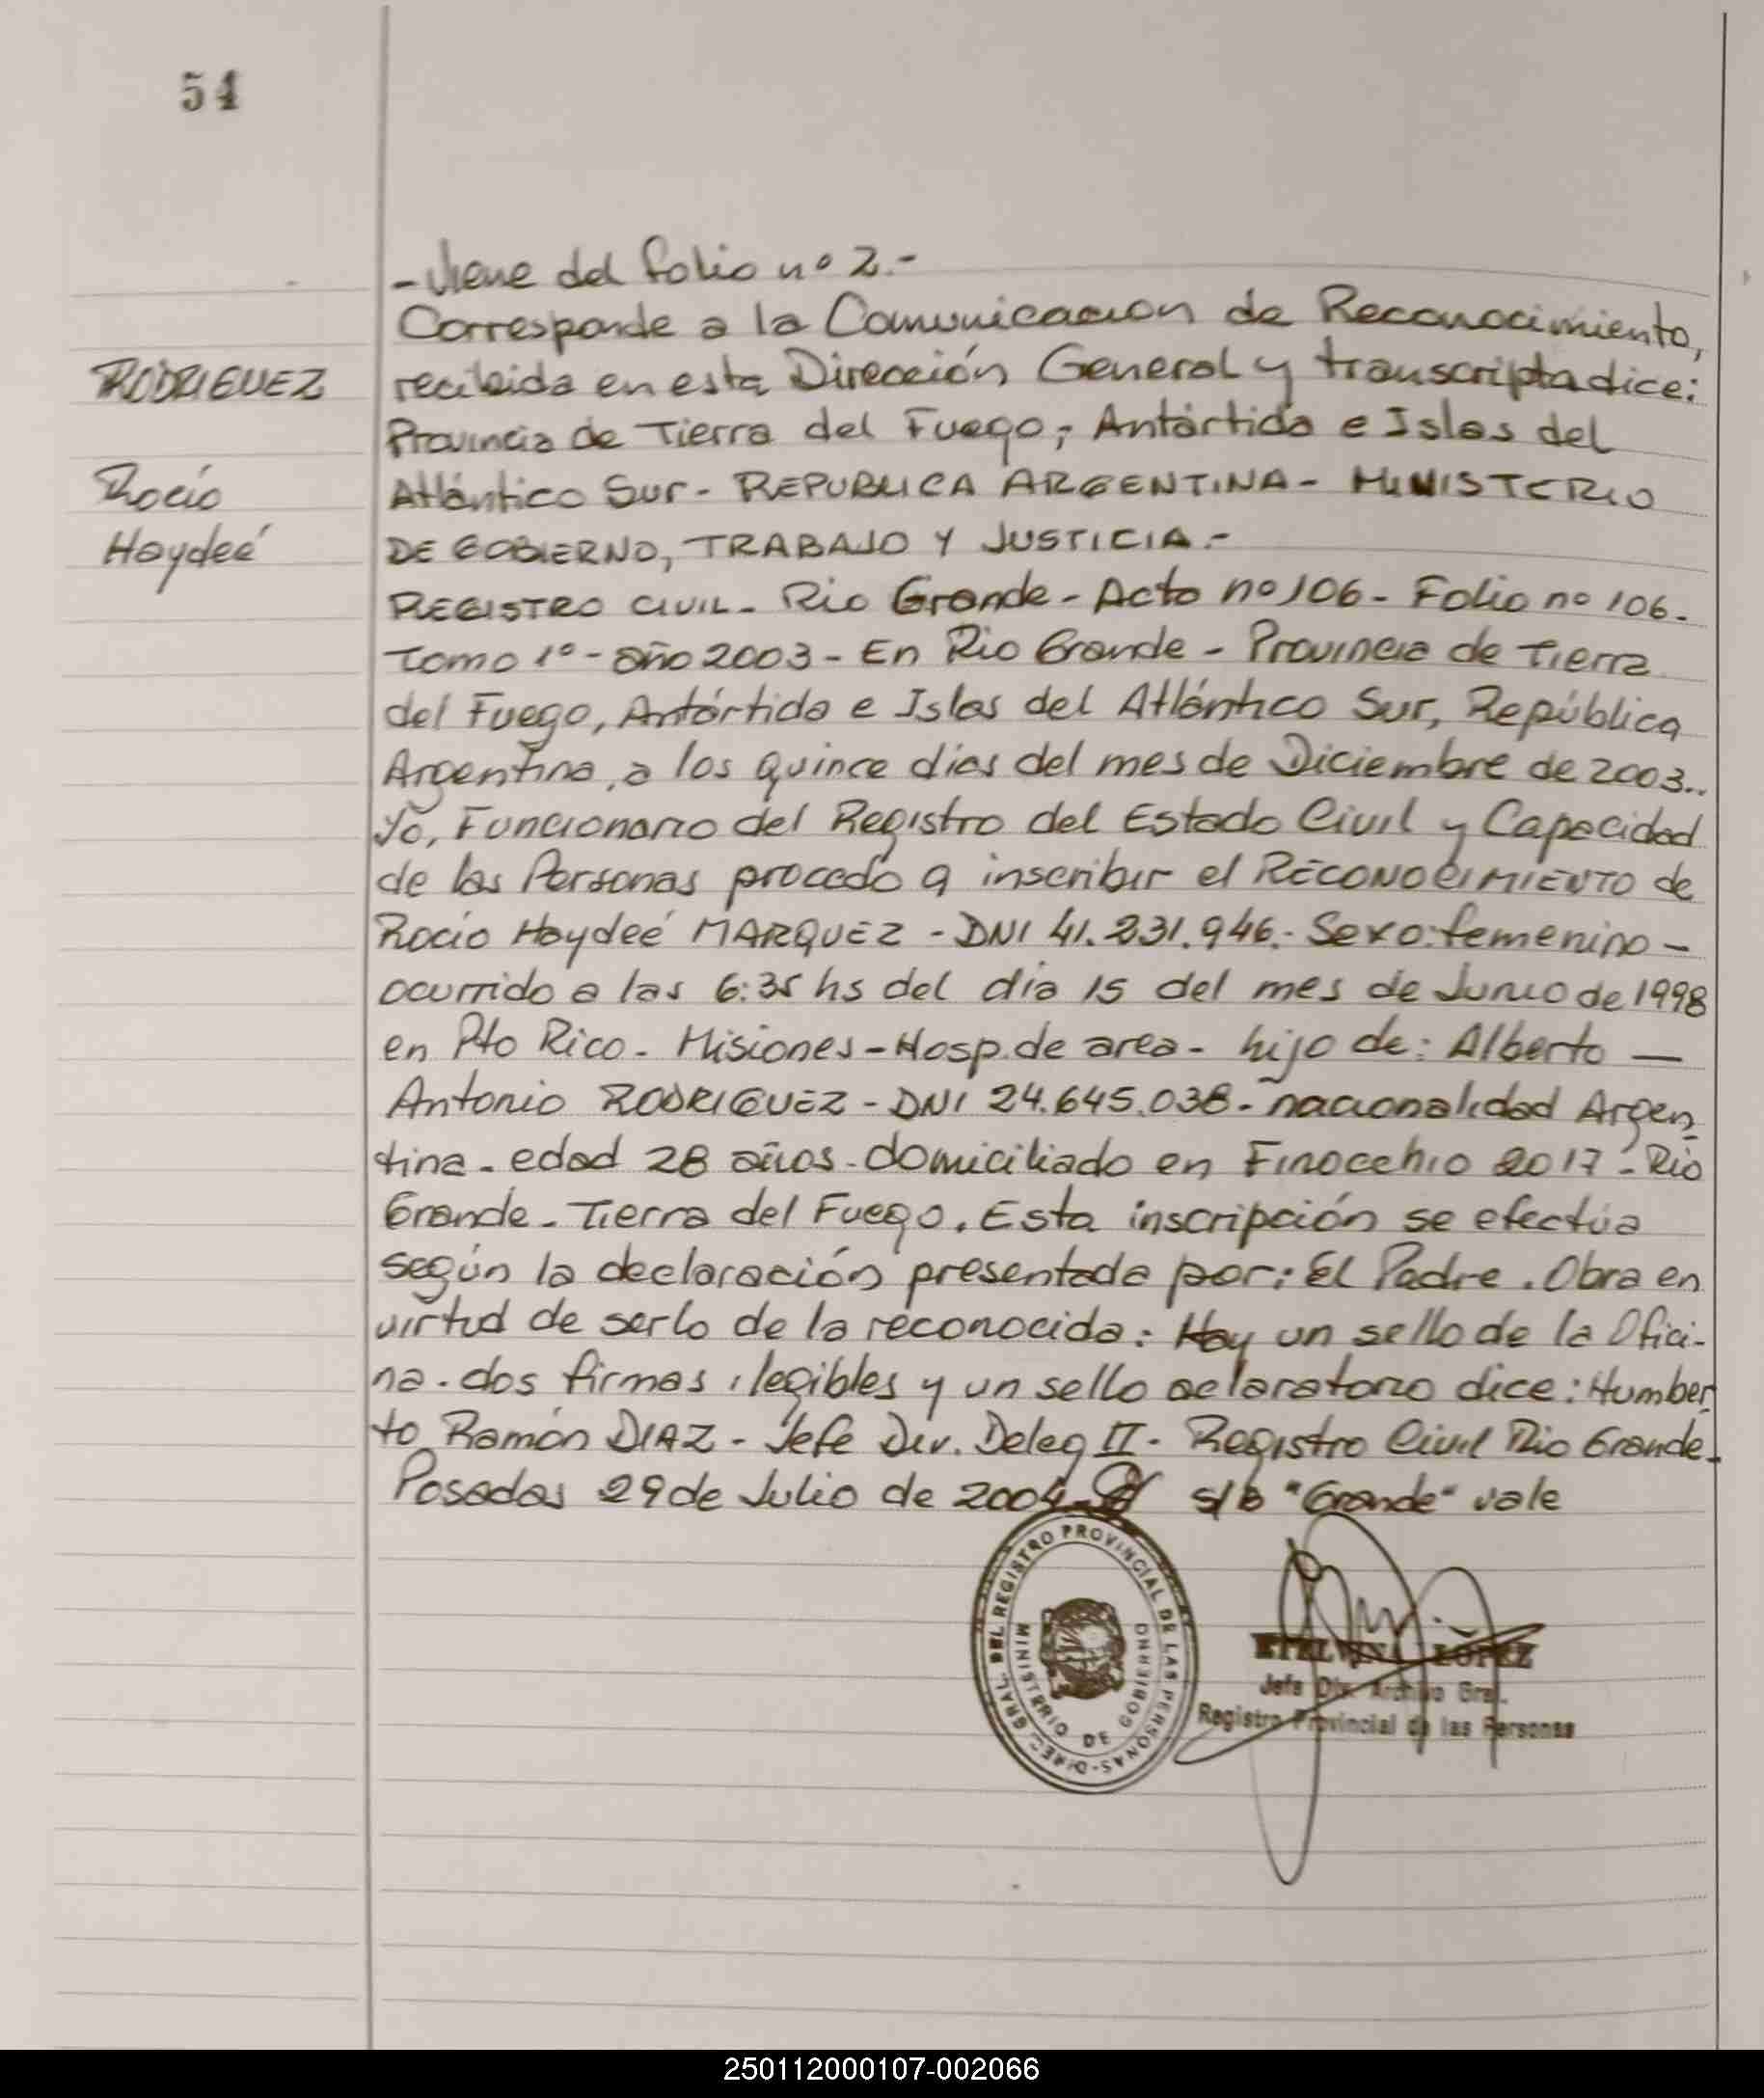 54
-Viene del folio nº 2.-
Corresponde a la Comunicacion de Reconocimiento,
RODRIGUEZ
recibida en esta Dirección General y transcripta dice:
Provincia de Tierra del Fuego,- Antártida e Islas del
Rocío
Atlántico Sur- REPUBLICA ARGENTINA- MINISTERIO
Haydeé
DE GOBIERNO, TRABAJO Y JUSTICIA.-
REGISTRO CIVIL- Rio Grande- Acta nº 106- Folio nº 106-
Tomo 1º- año 2003- En Rio Grande- Provincia de Tierra
del Fuego, Antártida e Islas del Atlántico Sur, República
Argentina, a los quince dias del mes de Diciembre de 2003..
Yo, Funcionario del Registro del Estado Civil y Capacidad
de las Personas procedo a inscribir el RECONOCIMIENTO de
Rocío Haydeé MARQUEZ - DNI 41.231.946.- Sexo: femenino-
ocurrido a las 6:35 hs del día 15 del mes de Junio de 1998
en Pto Rico- Misiones- Hosp. de area- hijo de: Alberto —
Antonio RODRIGUEZ- DNI 24.645.038- nacionalidad Argen-
tina- edad 28 años- domiciliado en Finocchio 2017- Rio
Grande- Tierra del Fuego. Esta inscripción se efectúa
según la declaración presentada por: El Padre. Obra en
virtud de serlo de la reconocida: Hay un sello de la Ofici-
na- dos firmas ilegibles y un sello aclaratorio dice: Humber-
to Ramón DIAZ- Jefe Div. Deleg II- Registro Civil Rio Grande-
Posadas 29 de Julio de 2004- s/b "Grande" vale
DIREC. GRAL. DEL REGISTRO PROVINCIAL DE LAS PERSONAS-
MINISTERIO DE GOBIERNO
ETELVINA LÓPEZ
Jefa Div. Archivo Gral.
Registro Provincial de las Personas
250112000107-002066